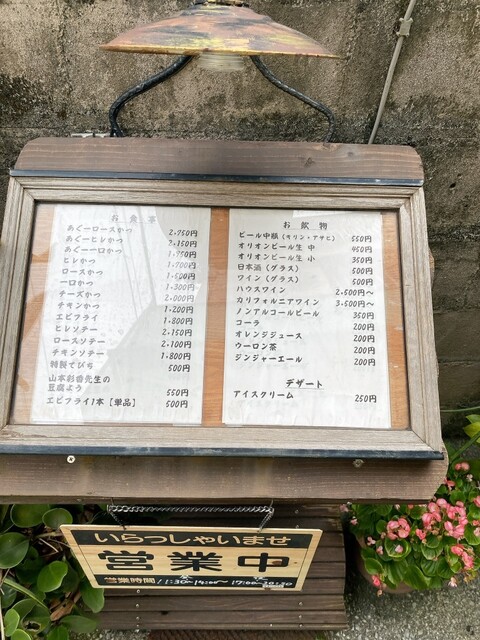 お食事
あぐーロースかつ 2,750円
あぐーヒレかつ 2,350円
あぐー一口かつ 1,950円
ヒレかつ 1,700円
ロースかつ 1,500円
一口かつ 1,300円
チーズかつ 2,000円
チキンかつ 1,200円
エビフライ 1,800円
ヒレソテー 2,150円
ロースソテー 2,100円
チキンソテー 1,800円
特製てびち 500円
山本彩香先生の
豆腐よう 550円
エビフライ1本【単品】 500円
お飲物
ビール中瓶（キリン・アサヒ） 550円
オリオンビール生 中 450円
オリオンビール生 小 350円
日本酒（グラス） 500円
ワイン（グラス） 500円
ハウスワイン 2,500円〜
カリフォルニアワイン 3,500円〜
ノンアルコールビール 350円
コーラ 200円
オレンジジュース 200円
ウーロン茶 200円
ジンジャーエール 200円
デザート
アイスクリーム 250円
いらっしゃいませ
営業中
営業時間／11:30〜14:00〜 17:00〜20:30